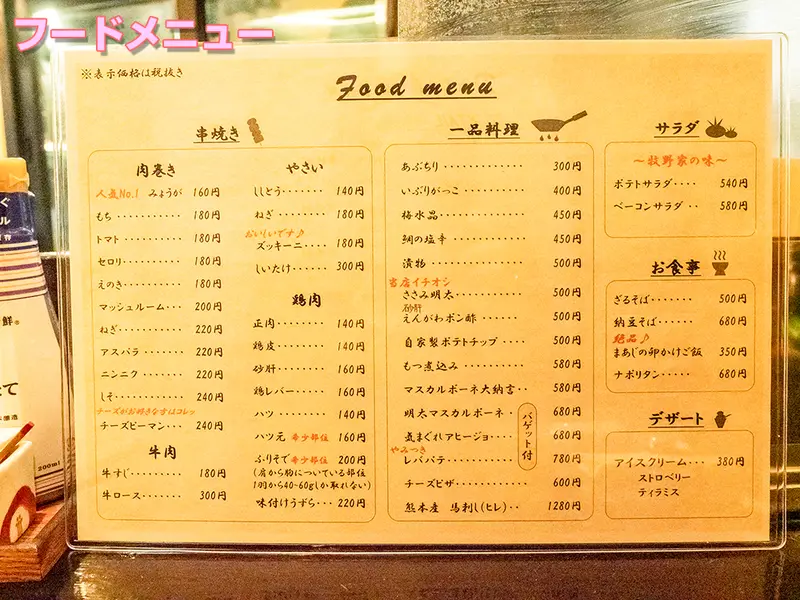 フードメニュー
※表示価格は税抜き
Food menu
串焼き
肉巻き
人気No.1 みょうが 160円
もち ・・・・・・・・・・ 180円
トマト ・・・・・・・・ 180円
セロリ ・・・・・・・・ 180円
えのき ・・・・・・・・ 180円
マッシュルーム・・・ 200円
ねぎ ・・・・・・・・・・ 220円
アスパラ ・・・・・・ 220円
ニンニク ・・・・・・ 220円
しそ ・・・・・・・・・・ 240円
チーズがお好きな方はコレッ
チーズピーマン・・・ 240円
牛肉
牛すじ・・・・・・・・ 180円
牛ロース・・・・・・・ 300円
やさい
ししとう・・・・・・ 140円
ねぎ ・・・・・・・・・ 180円
おいしいです♪
ズッキーニ・・・・ 180円
しいたけ・・・・・・ 300円
鶏肉
正肉・・・・・・・・ 140円
鶏皮・・・・・・・・ 140円
砂肝・・・・・・・・ 160円
鶏レバー・・・・・ 160円
ハツ ・・・・・・・・ 140円
ハツ元 希少部位 160円
ふりそで 希少部位 200円
(肩から胸についている部位
1羽から40~60gしか取れない)
味付けうずら・・・ 220円
一品料理
あぶちり ・・・・・・・・・・・・ 300円
いぶりがっこ ・・・・・・・・ 400円
梅水晶・・・・・・・・・・・・・ 450円
鯛の塩辛 ・・・・・・・・・・・ 450円
漬物 ・・・・・・・・・・・・・・ 500円
当店イチオシ
ささみ明太・・・・・・・・・・ 500円
砂肝
えんがわポン酢 ・・・・・・ 500円
自家製ポテトチップ ・・・ 500円
もつ煮込み ・・・・・・・・・ 580円
マスカルポーネ大納言・・ 580円
明太マスカルポーネ・ 680円
気まぐれアヒージョ・・・・ 680円
やみつき
レバパテ・・・・・・・・・・ 780円
バゲット付
チーズピザ・・・・・・・・・・ 600円
熊本産 馬刺し(ヒレ)・・ 1280円
サラダ
~牧野家の味~
ポテトサラダ・・・・ 540円
ベーコンサラダ ・・ 580円
お食事
ざるそば・・・・・・ 500円
納豆そば・・・・・・ 680円
絶品♪
まあじの卵かけご飯 350円
ナポリタン・・・・・ 680円
デザート
アイスクリーム・・・ 380円
ストロベリー
ティラミス
200ml